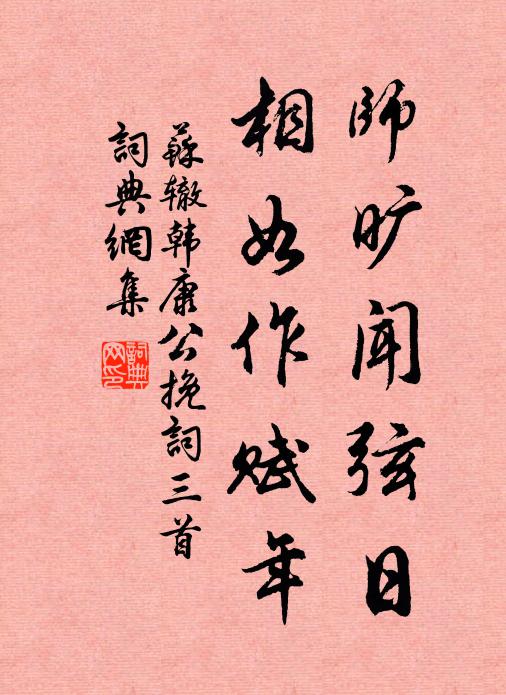 師旷闻弦日
相如作赋年
蘇辙韩康公挽詞三首
詞典網集
詞典网印